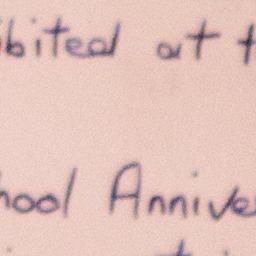 bited at t
hool Annive